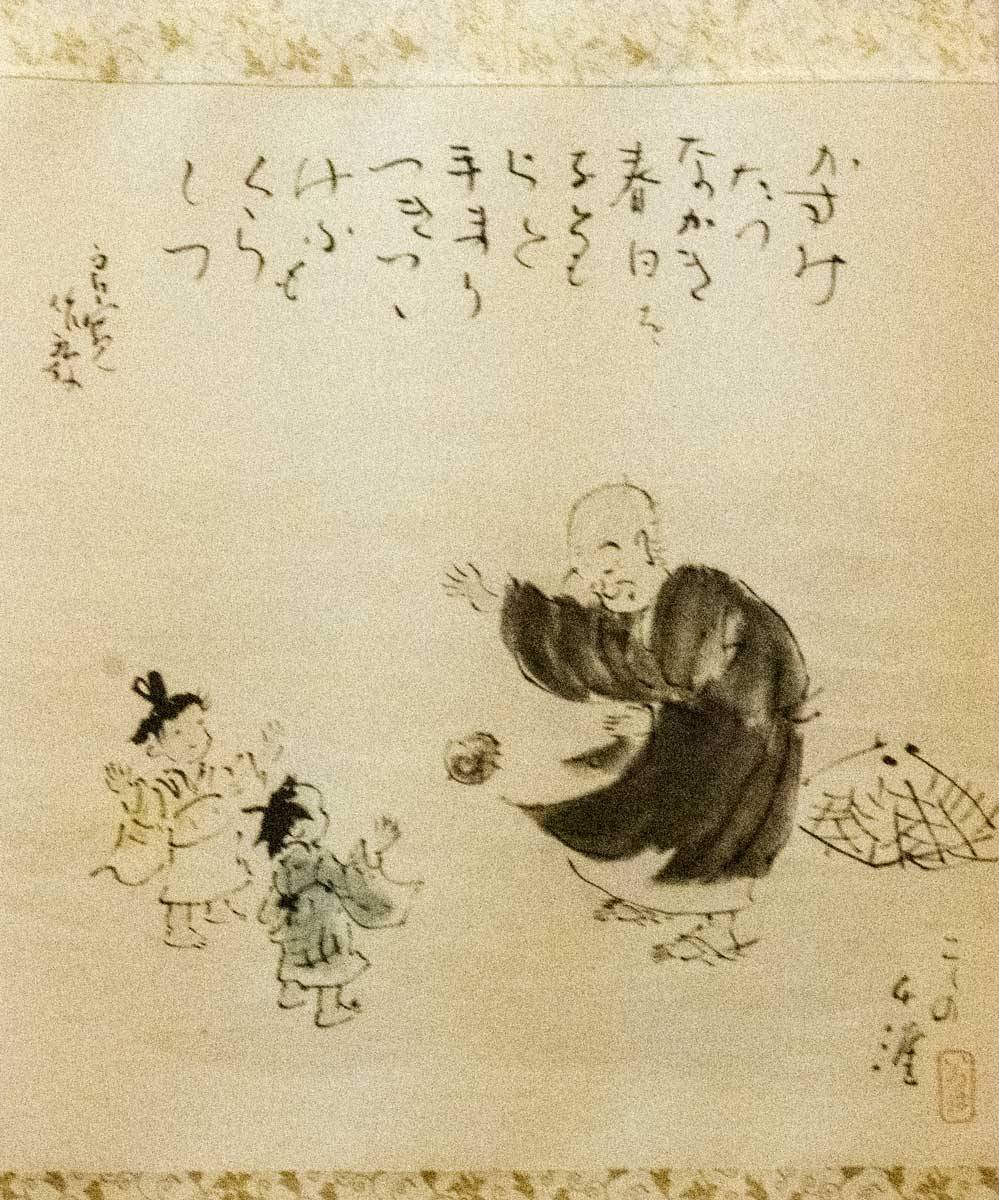 かすみ
たつ
なかき
春日を
子とも
らと
手まり
つきつゝ
けふも
くら
しつ
良寛
こしの
千涯